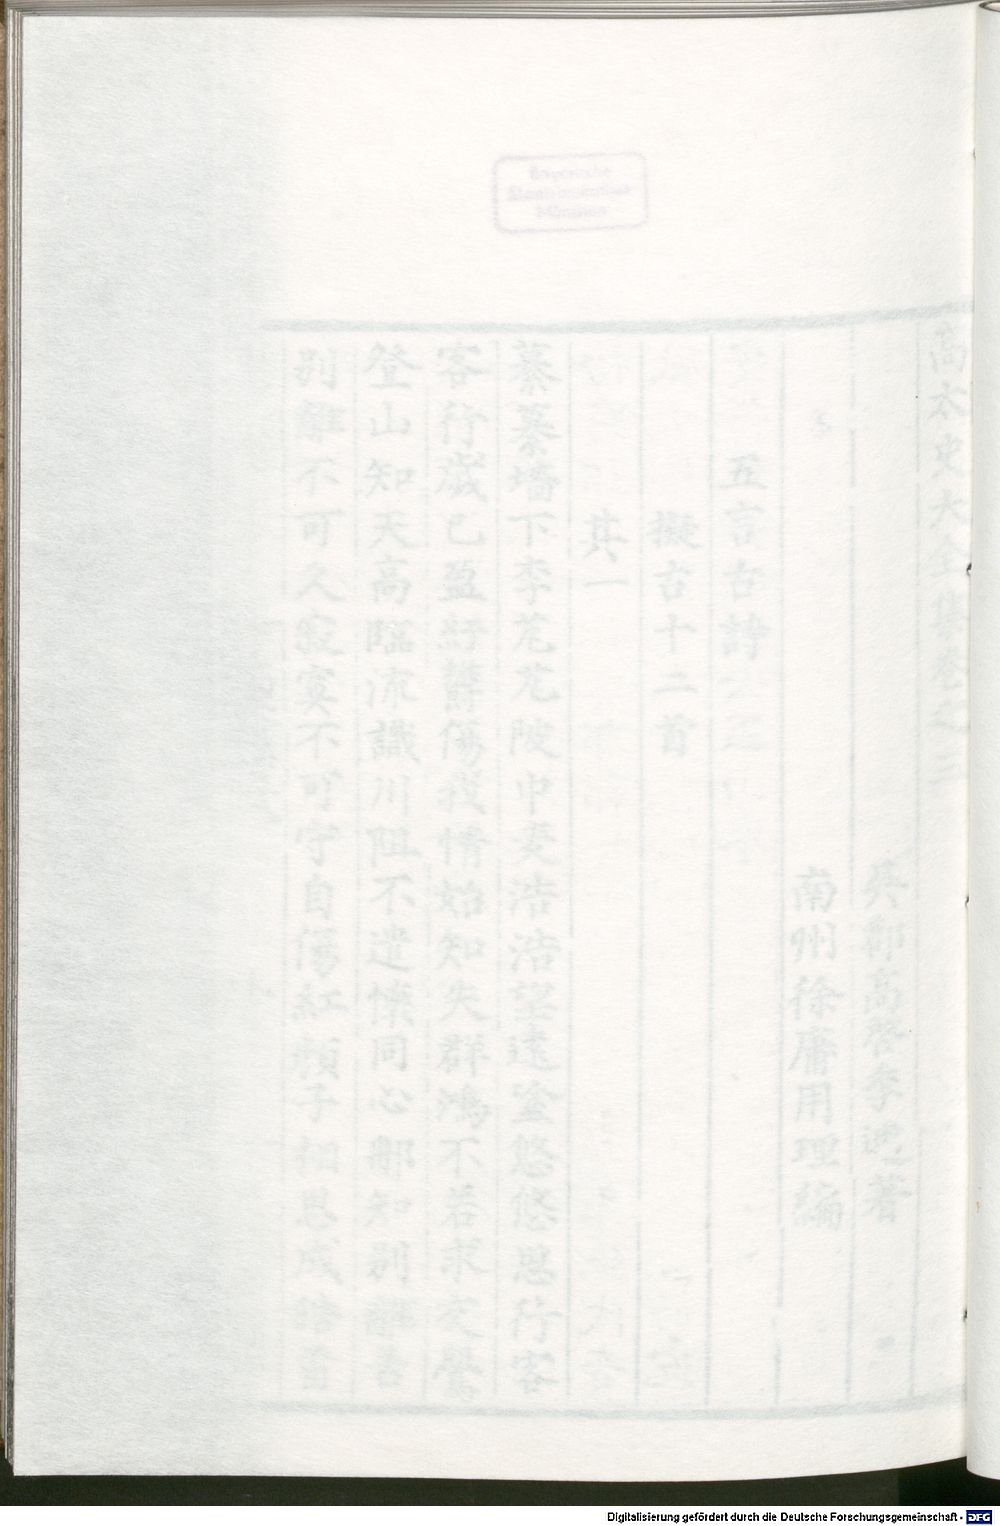 Bayerische
Staatsbibliothek
München
高太史大全集卷之三
吳郡高啓季迪著
南州徐庸用理編
五言古詩
擬古十二首
其一
蓁蓁墻下李芃芃陂中麦浩浩望遠塗悠悠思行客
客行歲已盈紆鬱傷我情始知失群鴻不若求友鶯
登山知天高臨流識川阻不遣懐同心那知別離苦
別離不可久寂寞不可守自傷紅顏子相思成皓首
Digitalisierung gefördert durch die Deutsche Forschungsgemeinschaft - DFG